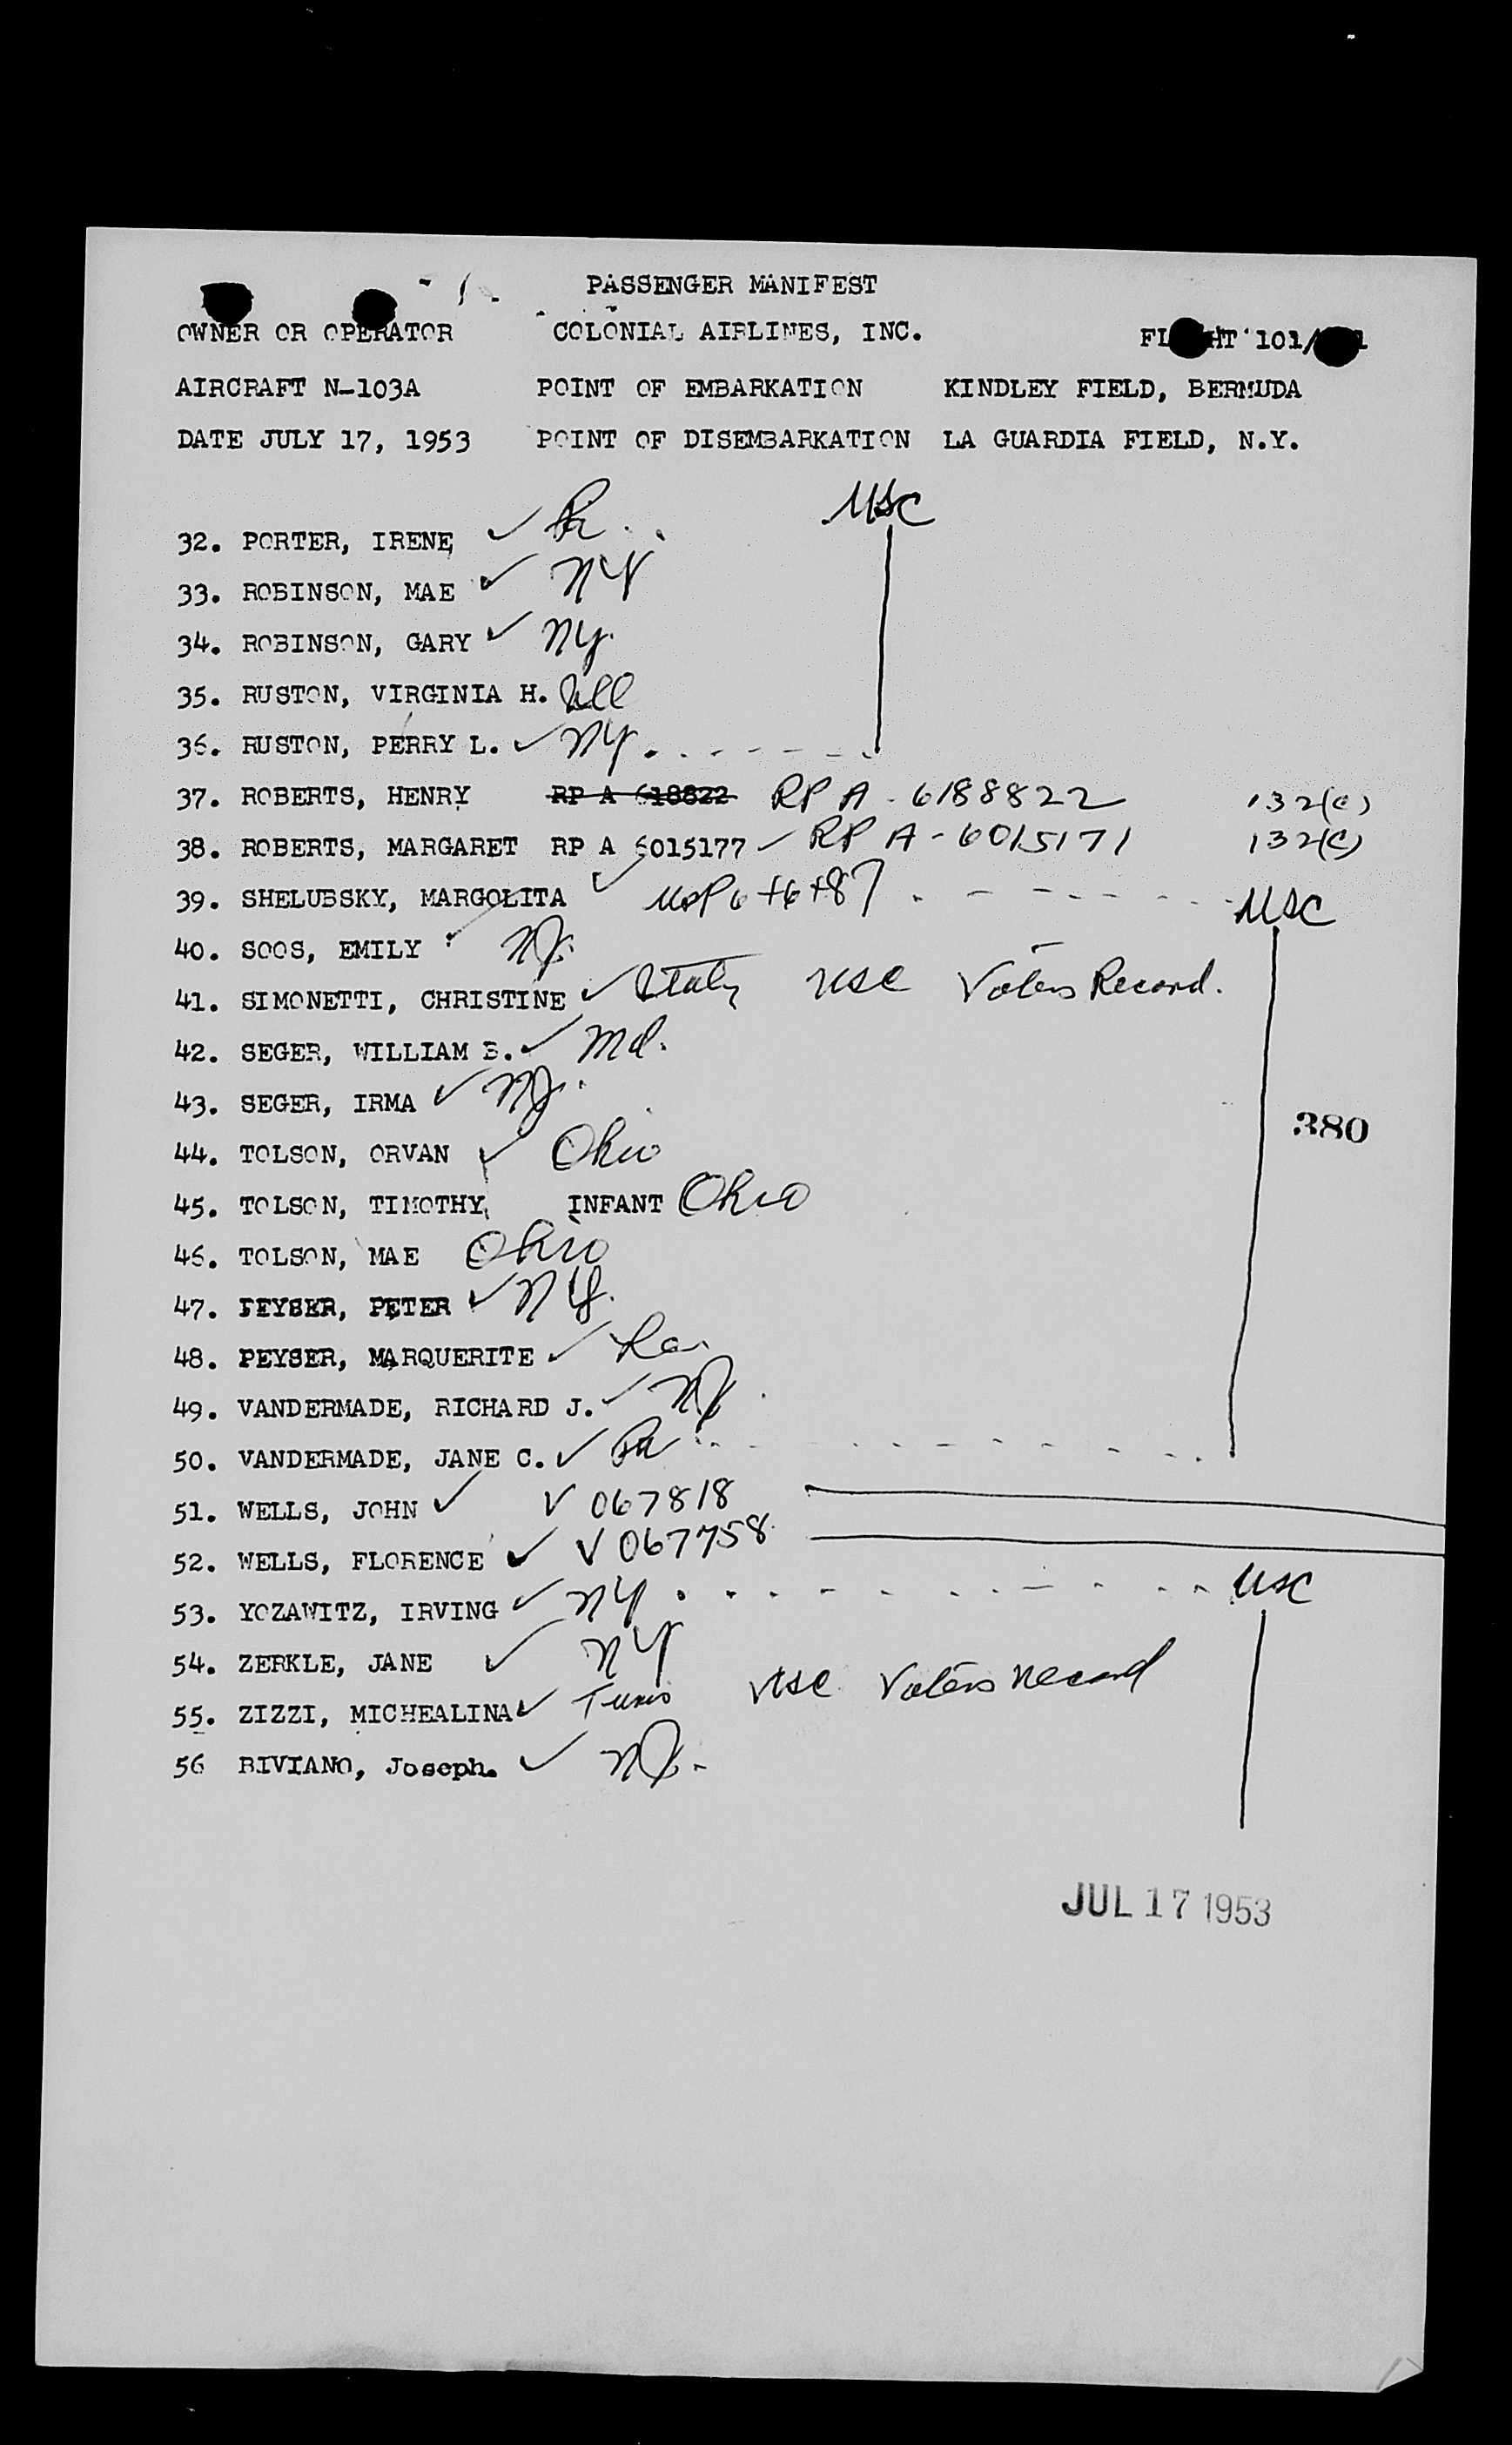 PASSENGER MANIFEST
OWNER OR OPERATOR COLONIAL AIRLINES, INC. FLIGHT 101/
AIRCRAFT N-103A POINT OF EMBARKATION KINDLEY FIELD, BERMUDA
DATE JULY 17, 1953 POINT OF DISEMBARKATION LA GUARDIA FIELD, N.Y.
USC
32. PORTER, IRENE ✓ Pa.
33. ROBINSON, MAE ✓ NY
34. ROBINSON, GARY ✓ NY.
35. RUSTON, VIRGINIA H. Ill
36. RUSTON, PERRY L. ✓ NY.
37. ROBERTS, HENRY RP A 618822 RP A - 6188822 132(c)
38. ROBERTS, MARGARET RP A 6015177 ✓ RP A - 6015171 132(c)
39. SHELUBSKY, MARGOLITA ✓ USC
40. SOOS, EMILY NJ.
41. SIMONETTI, CHRISTINE ✓ Italy USC Voters Record.
42. SEGER, WILLIAM B. ✓ Md.
43. SEGER, IRMA ✓ NJ.
380
44. TOLSON, ORVAN ✓ Ohio
45. TOLSON, TIMOTHY INFANT Ohio
46. TOLSON, MAE Ohio
47. PEYSER, PETER ✓ NY.
48. PEYSER, MARQUERITE ✓
49. VANDERMADE, RICHARD J. ✓ NJ.
50. VANDERMADE, JANE C. ✓ Pa
51. WELLS, JOHN ✓ V 067818
52. WELLS, FLORENCE ✓ V 067758
53. YOZAWITZ, IRVING ✓ NY USC
54. ZERKLE, JANE ✓ NY
55. ZIZZI, MICHEALINA ✓ Tunis USC Voters Record
56 BIVIANO, Joseph. ✓ NJ.
JUL 17 1953